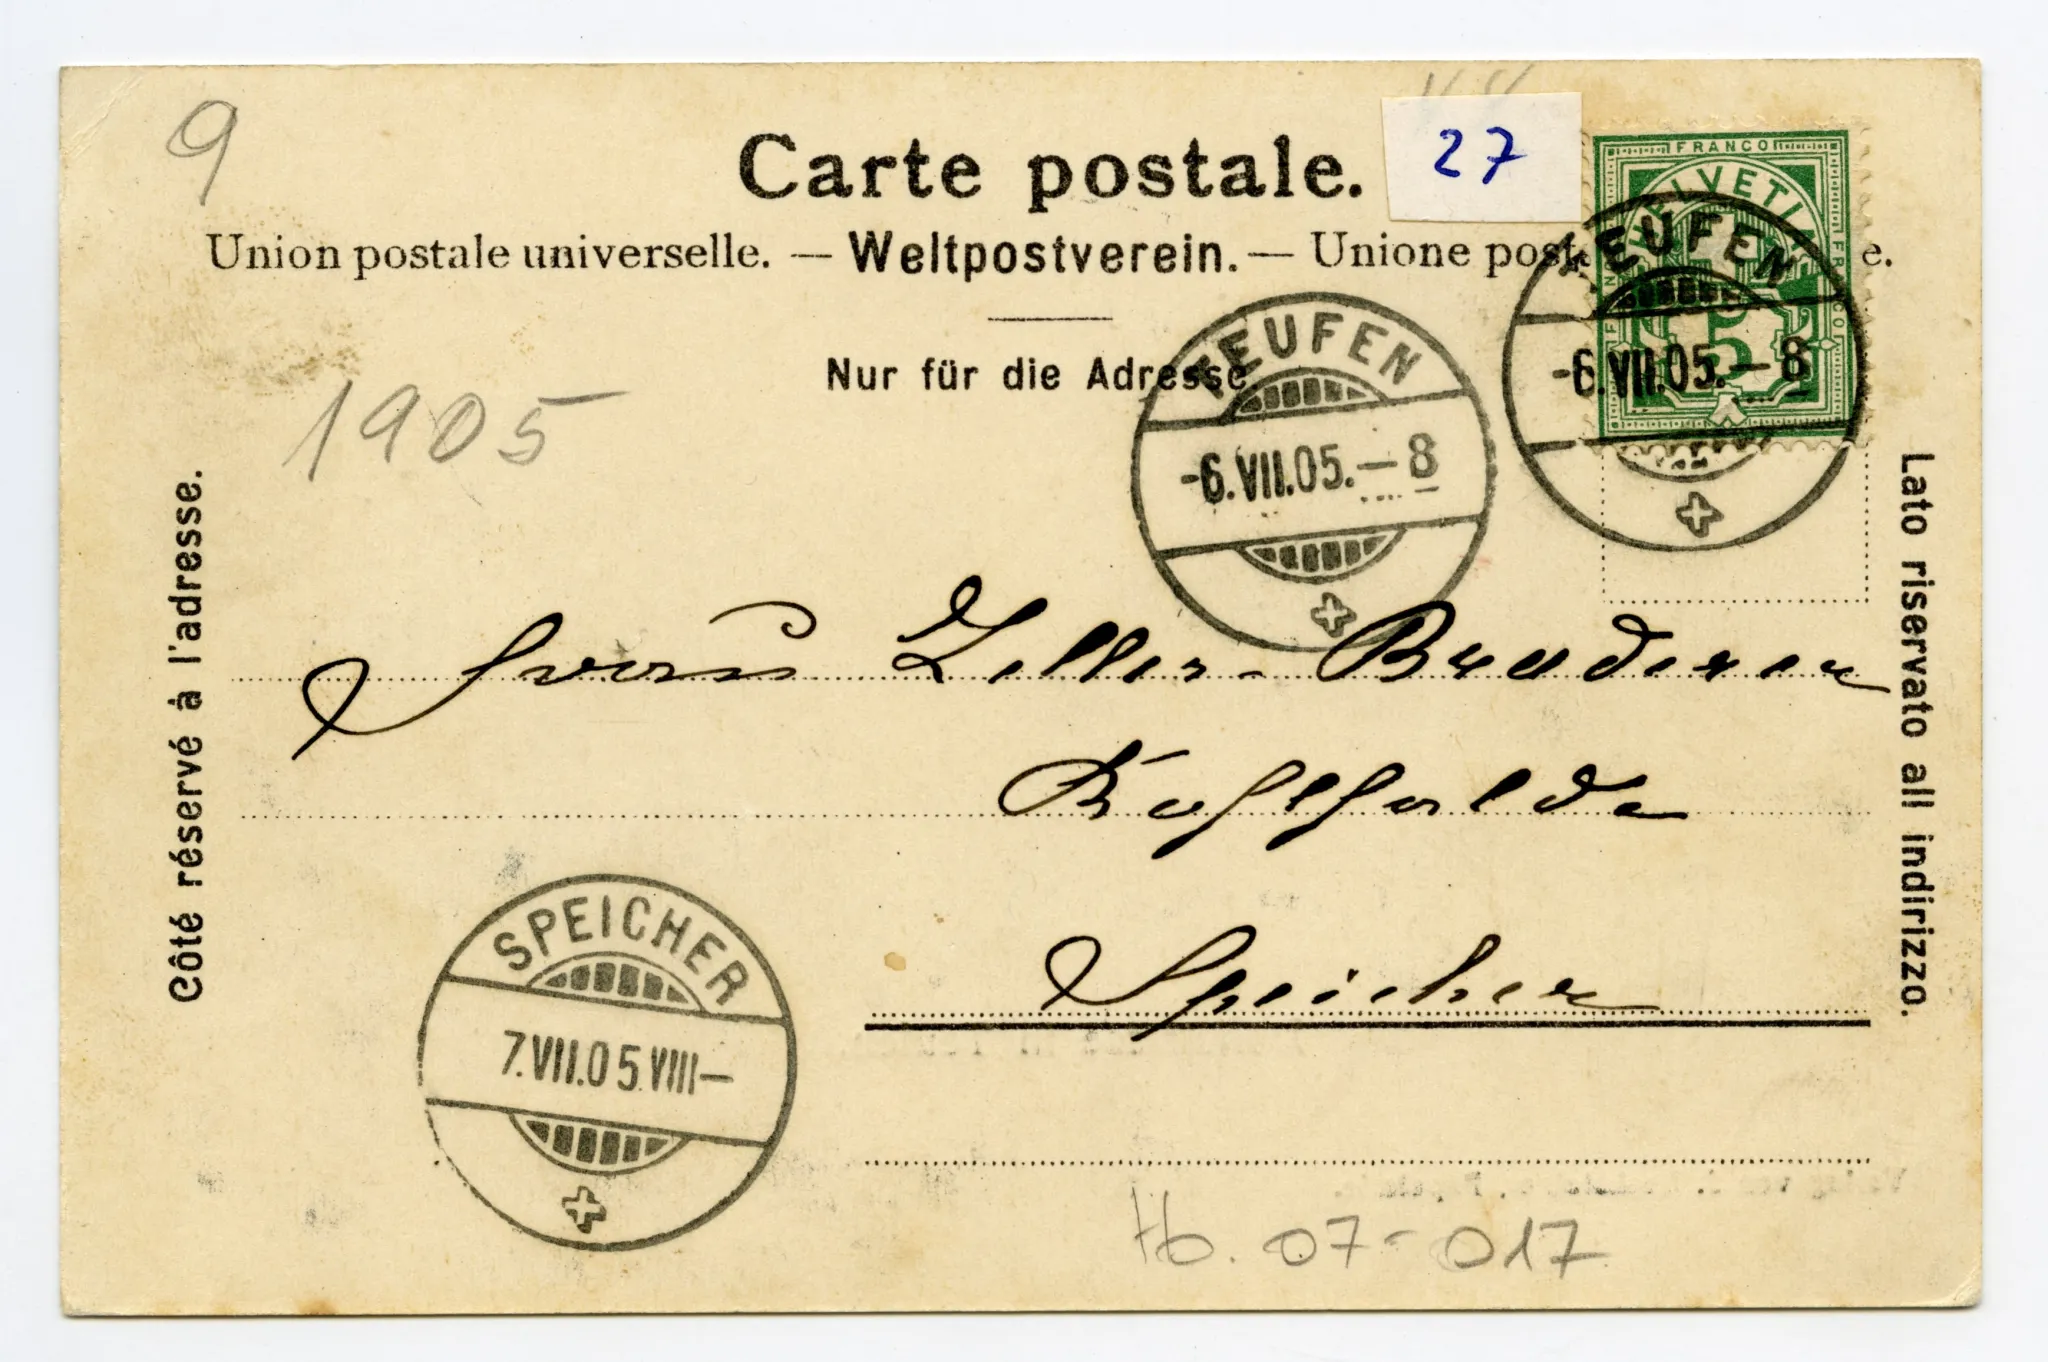 9
27
Carte postale.
FRANCO
HELVETIA
5
Union postale universelle. — Weltpostverein. — Unione post e.
TEUFEN
-6.VII.05.–8
Nur für die Adresse.
TEUFEN
-6.VII.05.–8
1905
Côté réservé à l'adresse.
Lato riservato all indirizzo.
Frau Zeller-Bruderer
Kohlhalde
Speicher
SPEICHER
7.VII.05.VIII–
07-017